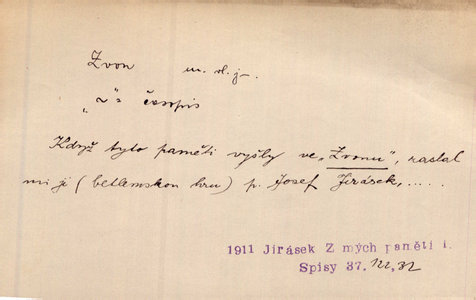 Zvon m. vl. j.
„~“ = časopis
Když tyto paměti vyšly ve „Zvonu“, zaslal
mi ji (betlemskou hru) p. Josef Jirásek, .....
1911 Jirásek Z mých pamětí I.
Spisy 37.